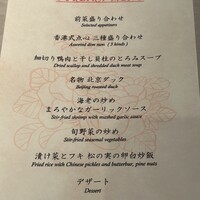 前菜盛り合わせ
Selected appetizers
香港式点心 三種盛り合わせ
Assorted dim sum ( 3 kinds )
細切り鴨肉と干し貝柱のとろみスープ
Dried scallop and shredded duck meat soup
名物 北京ダック
Beijing roasted duck
海老の炒め
まろやかなガーリックソース
Stir-fried shrimp with mashed garlic sauce
旬野菜の炒め
Stir-fried seasonal vegetables
漬け菜とフキ 松の実の卵白炒飯
Fried rice with Chinese pickles and butterbur, pine nuts
デザート
Dessert